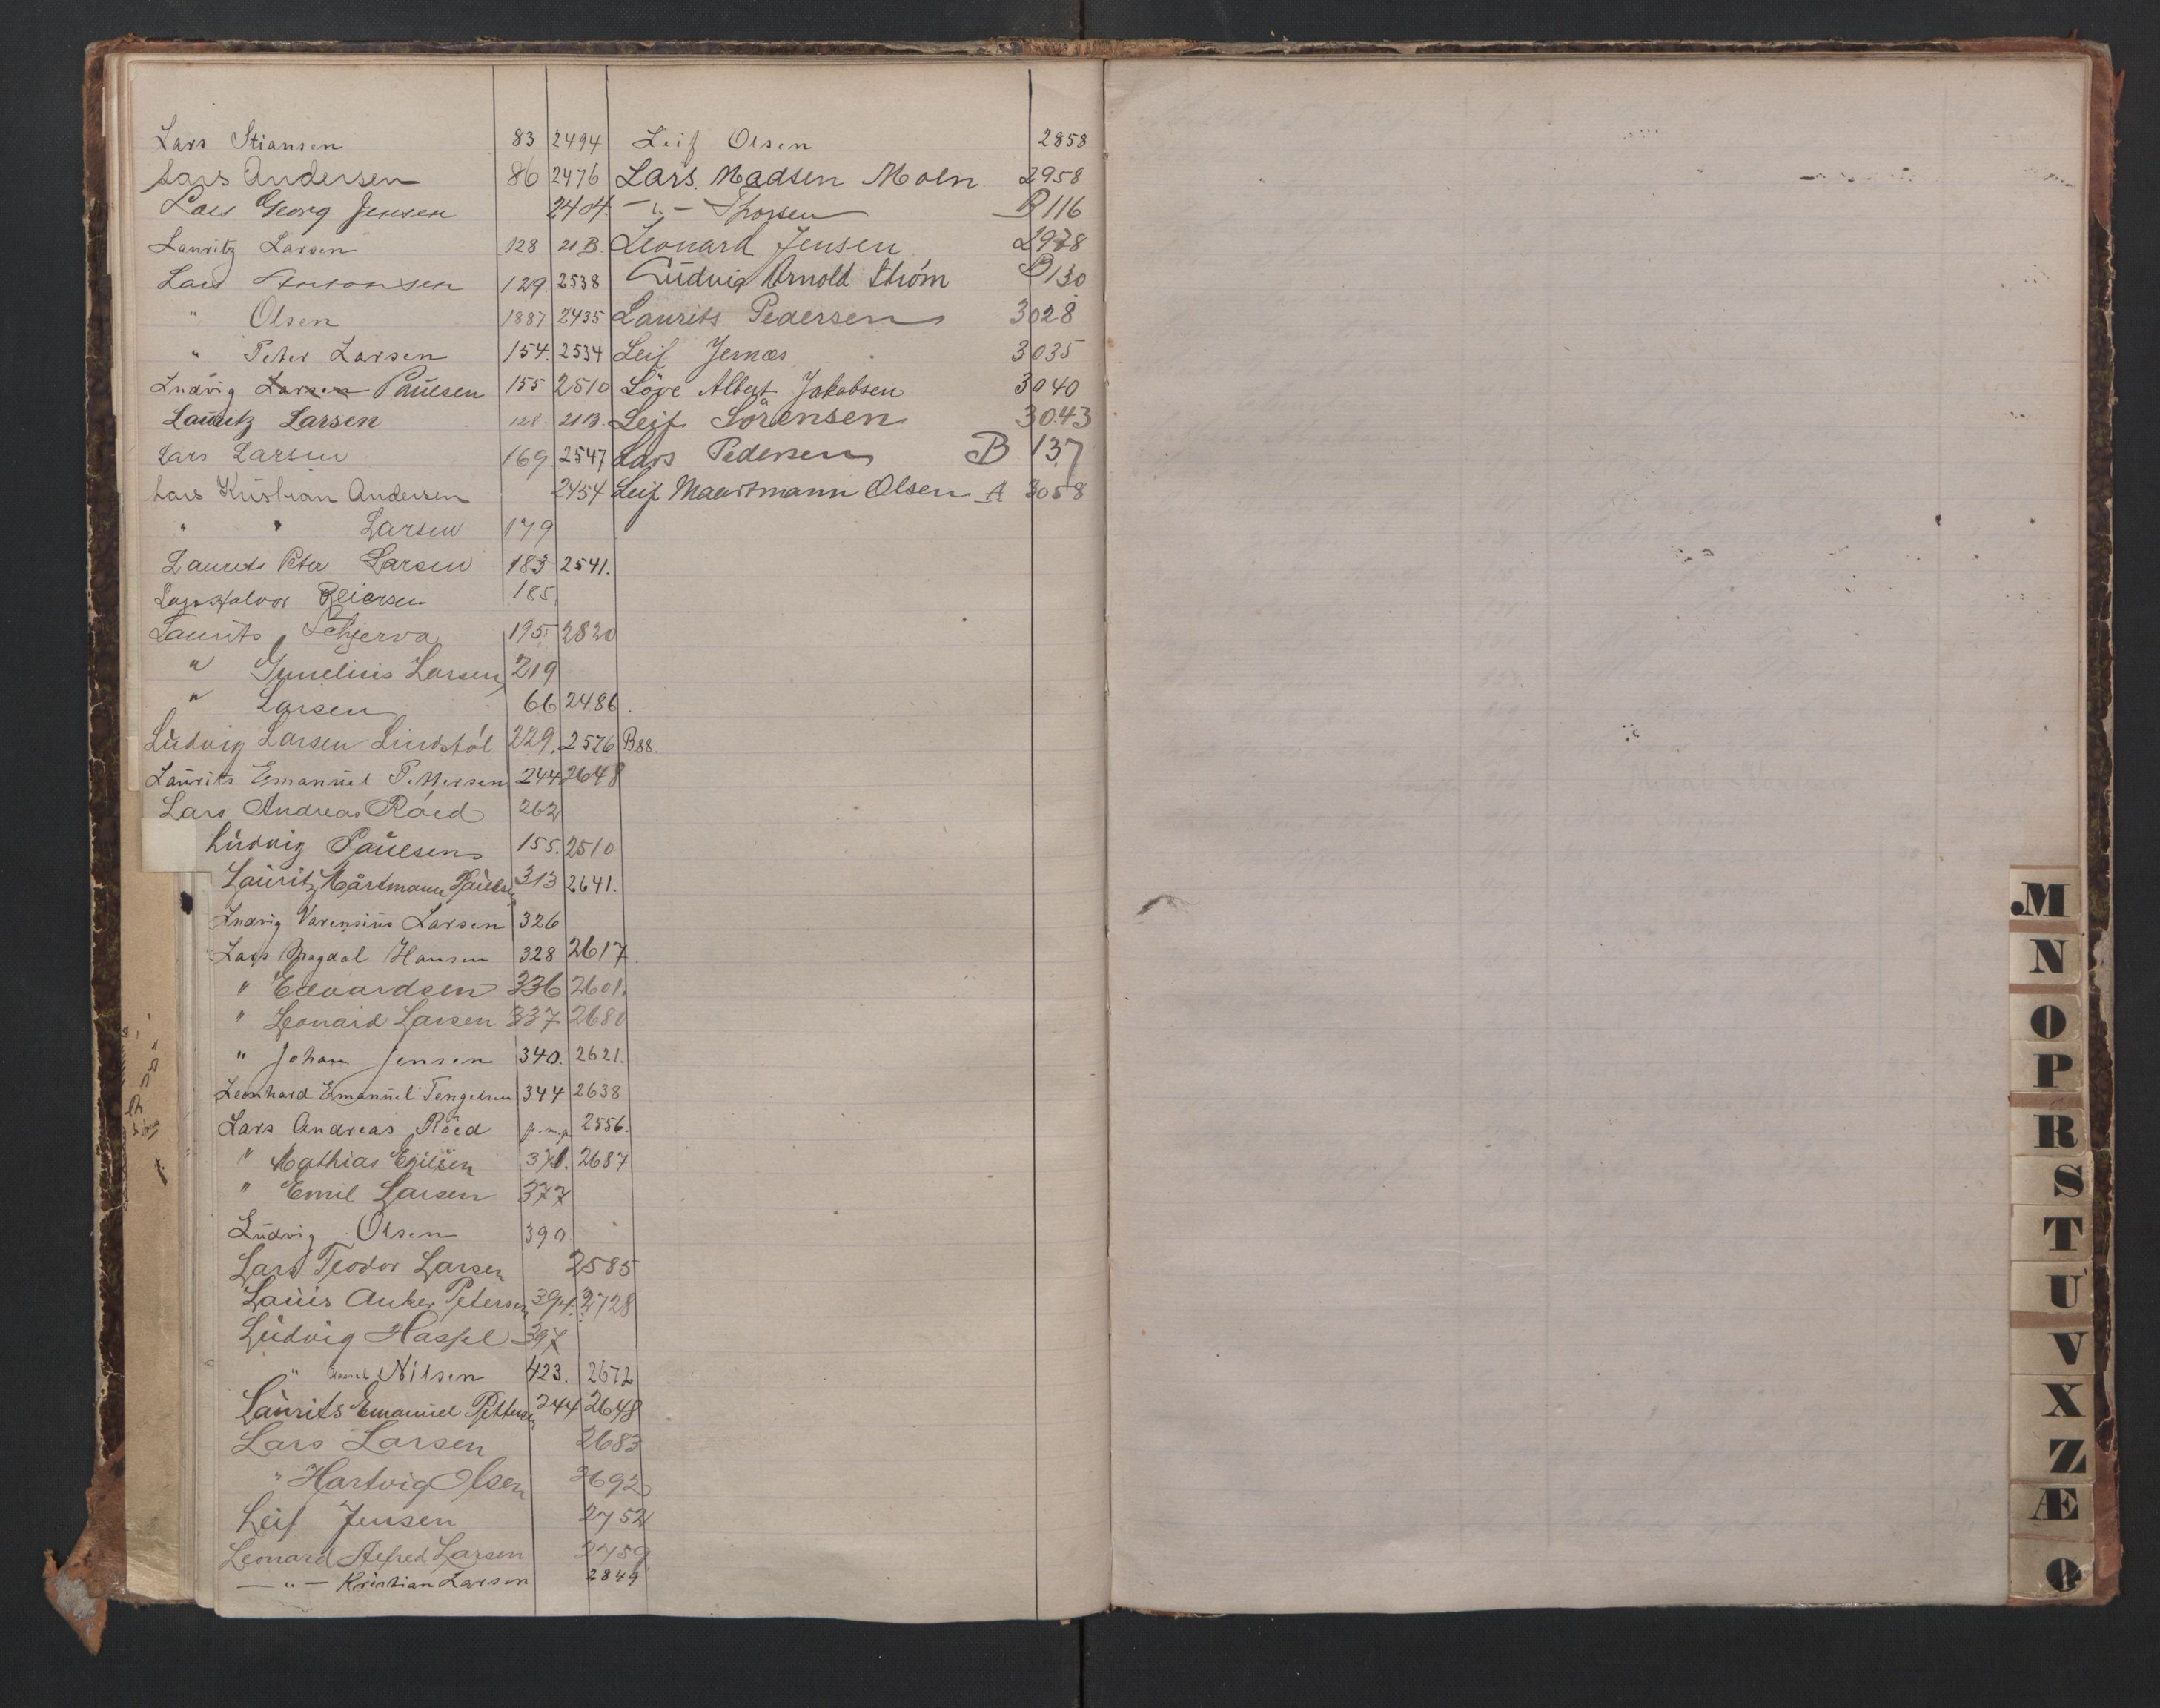 Lars Stiansen 83 2494
Lars Andersen 86 2476
Lars Georg Jensen 2404.
Lauritz Larsen 128 21 B.
Lars 129. 2538
" Olsen 1887 2435
" Peter Larsen 154. 2534
Ludvig Larsen Paulsen 155 2510
Lauritz Larsen 128 21 B.
Lars Larsen 169 2547
Lars Kristian Andersen 2454
" " Larsen 179
Laurits Peter Larsen 183 2541.
Lars Halvor Reiersen 185.
Laurits 195 2820
" Larsen 219
" Larsen 66 2486.
Ludvig Larsen Lindstøl 229. 2576 B88.
Laurits Emanuel Pettersen 244 2648
Lars Andreas Røed 262
Ludvig Paulsen 155. 2510
Lauritz Martmann Paulsen 313 2641.
Ludvig Varensius Larsen 326
Lars Hansen 328 2617
" Edvardsen 336 2601.
" Leonard Larsen 337 2680
" Johan Jensen 340. 2621.
Leonhard Emanuel Tengelsen 344 2638
Lars Andreas Røed p.m.p. 2556.
" Mathias 371. 2687
" Emil Larsen 377
Ludvig Olsen 390
Lars Teodor Larsen 2585
Lauis Anker Petersen 394. 2728
Ludvig Hassel 397
" Nilsen 423. 2672
Laurits Emanuel Pettersen 244 2648
Lars Larsen 2683
" Hartvig Olsen 2692
Leif Jensen 2752
Leonard Alfred Larsen 2759
— " — Kristian Larsen 2849
Leif Olsen 2858
Lars Madsen Moen 2958
— " — Thorsen B 116
Leonard Jensen 2978
Ludvig Arnold Strøm B 130
Laurits Pedersen 3028
Leif Jernæs 3035
Løve Albert Jakobsen 3040
Leif Sörensen 3043
Lars Pedersen B 137
Leif Maartmann Olsen A 3058
M
N
O
P
R
S
T
U
V
X
Z
Æ
Ø